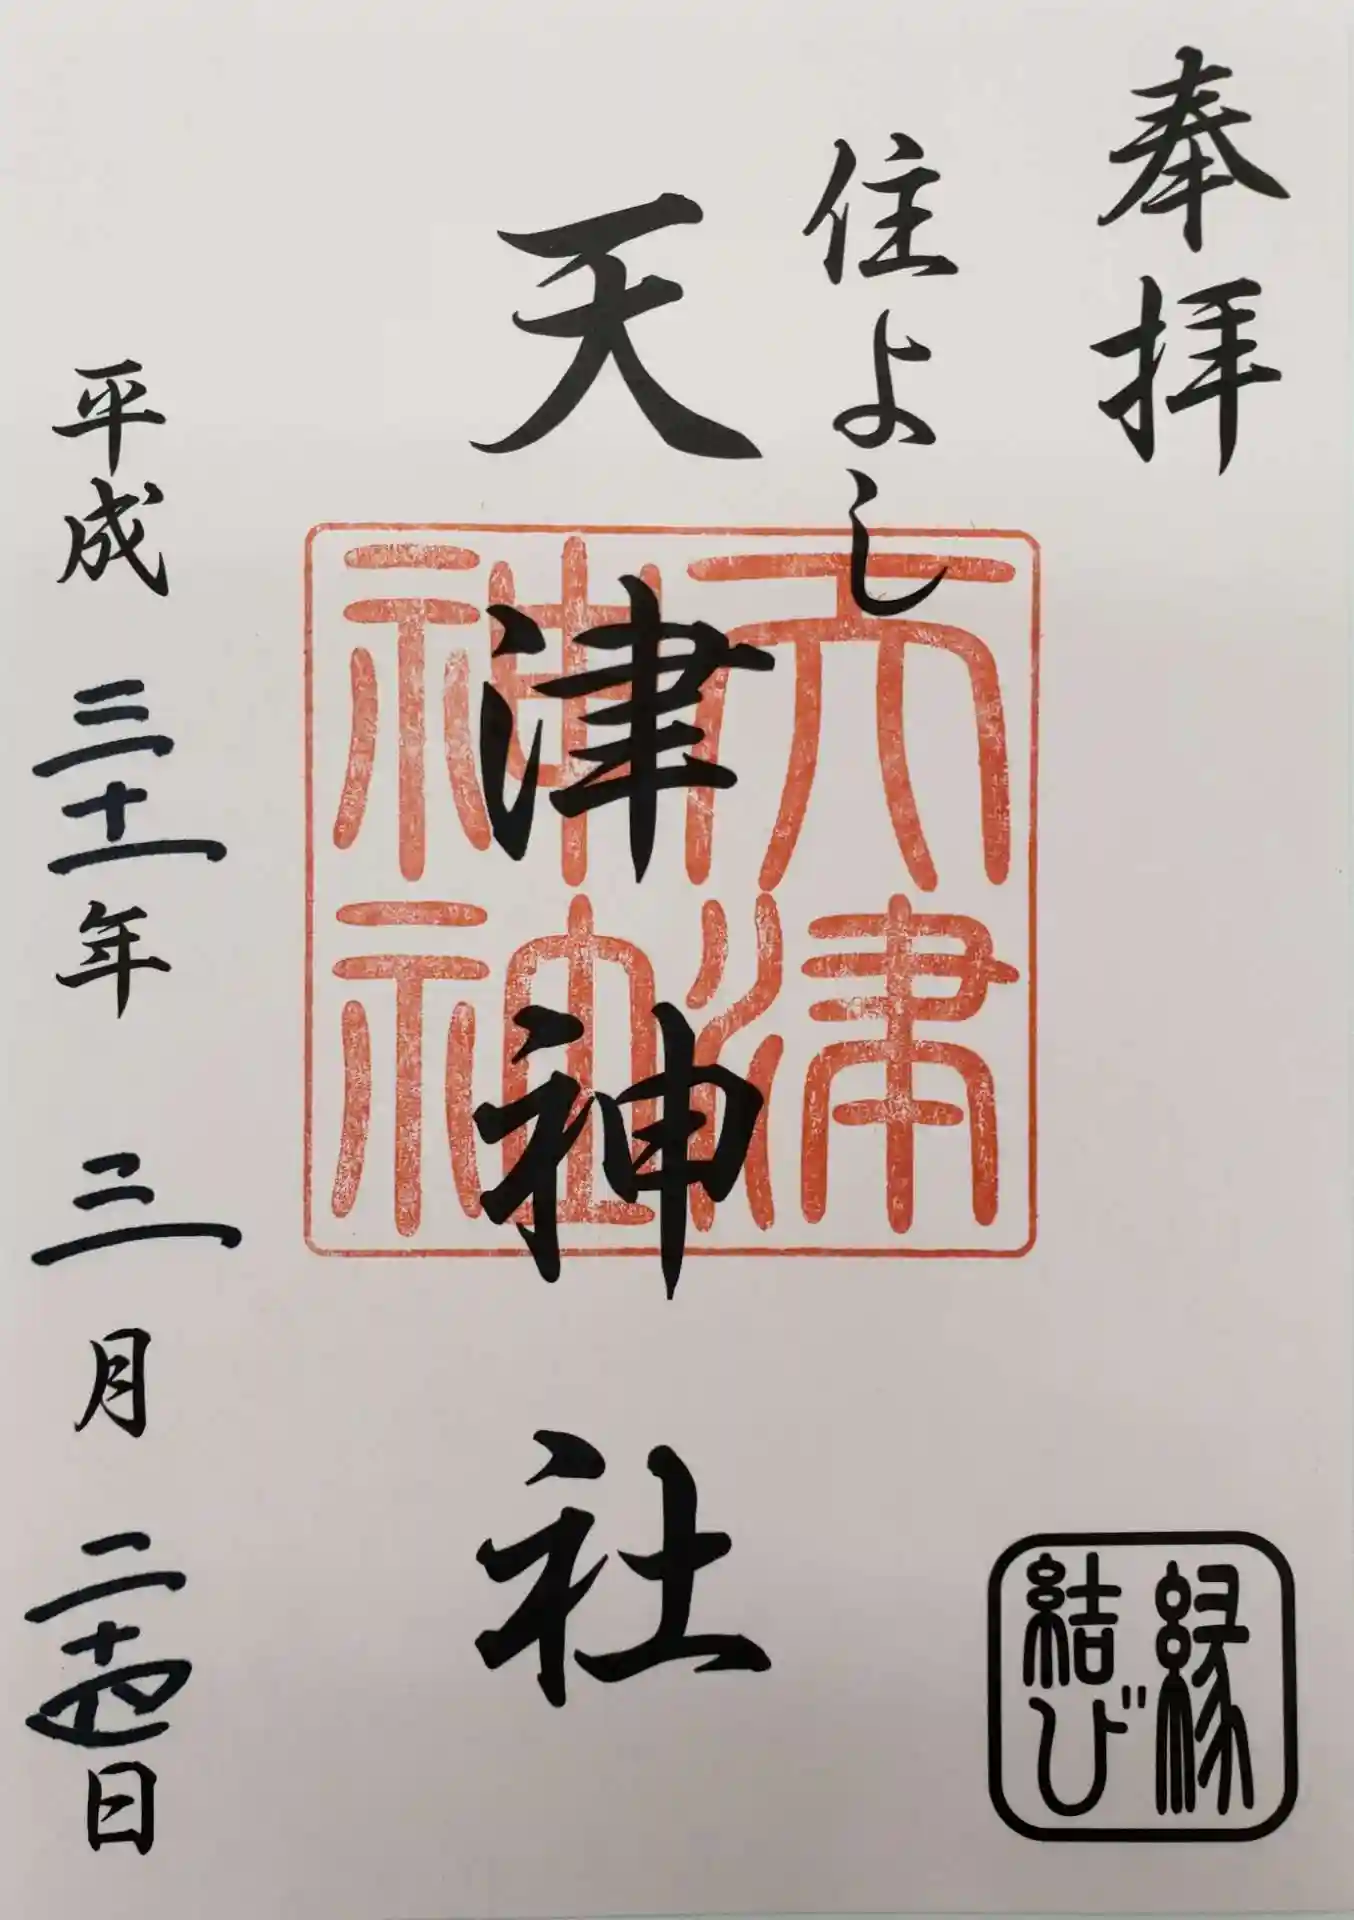 奉拝
住よし
天津神社
天津
神社
平成三十一年三月二十日
縁
結び